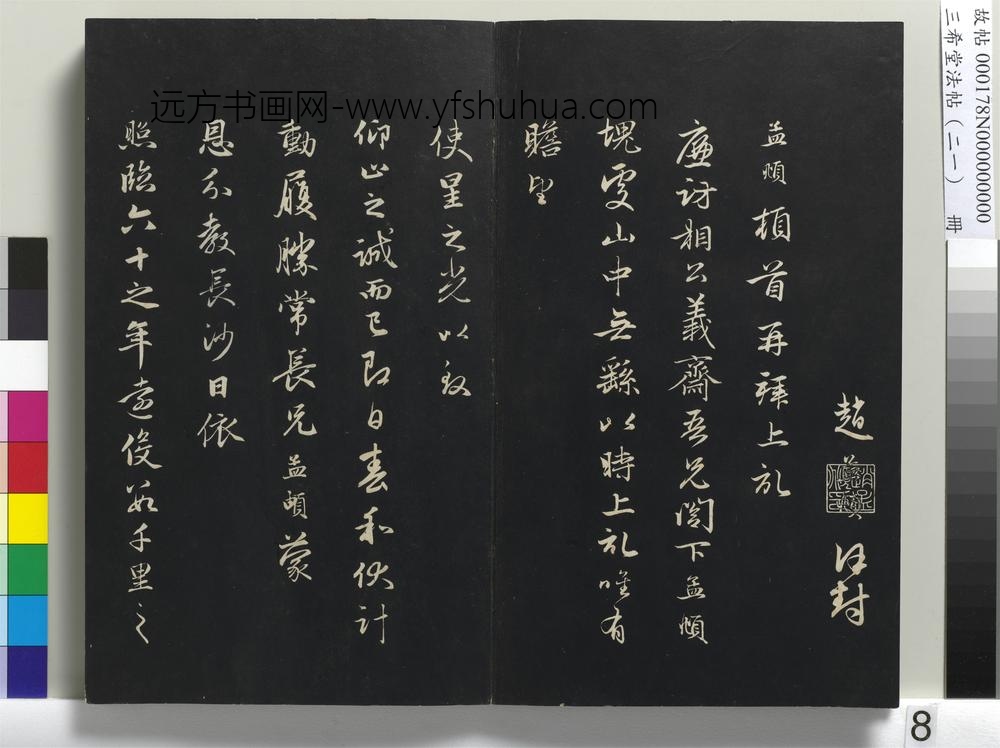 故帖 000178N000000000
三希堂法帖（二一） 冊
远方书画网-www.yfshuhua.com
趙 謹封
孟頫頓首再拜上記
廉訪相公義齋吾兄閣下孟頫
塊處山中無繇以時上記唯有
瞻望
使星之光以致
仰止之誠而已即日春和伏計
動履勝常長兄孟頫蒙
恩分教長沙日依
照臨六十之年遠役數千里之
8